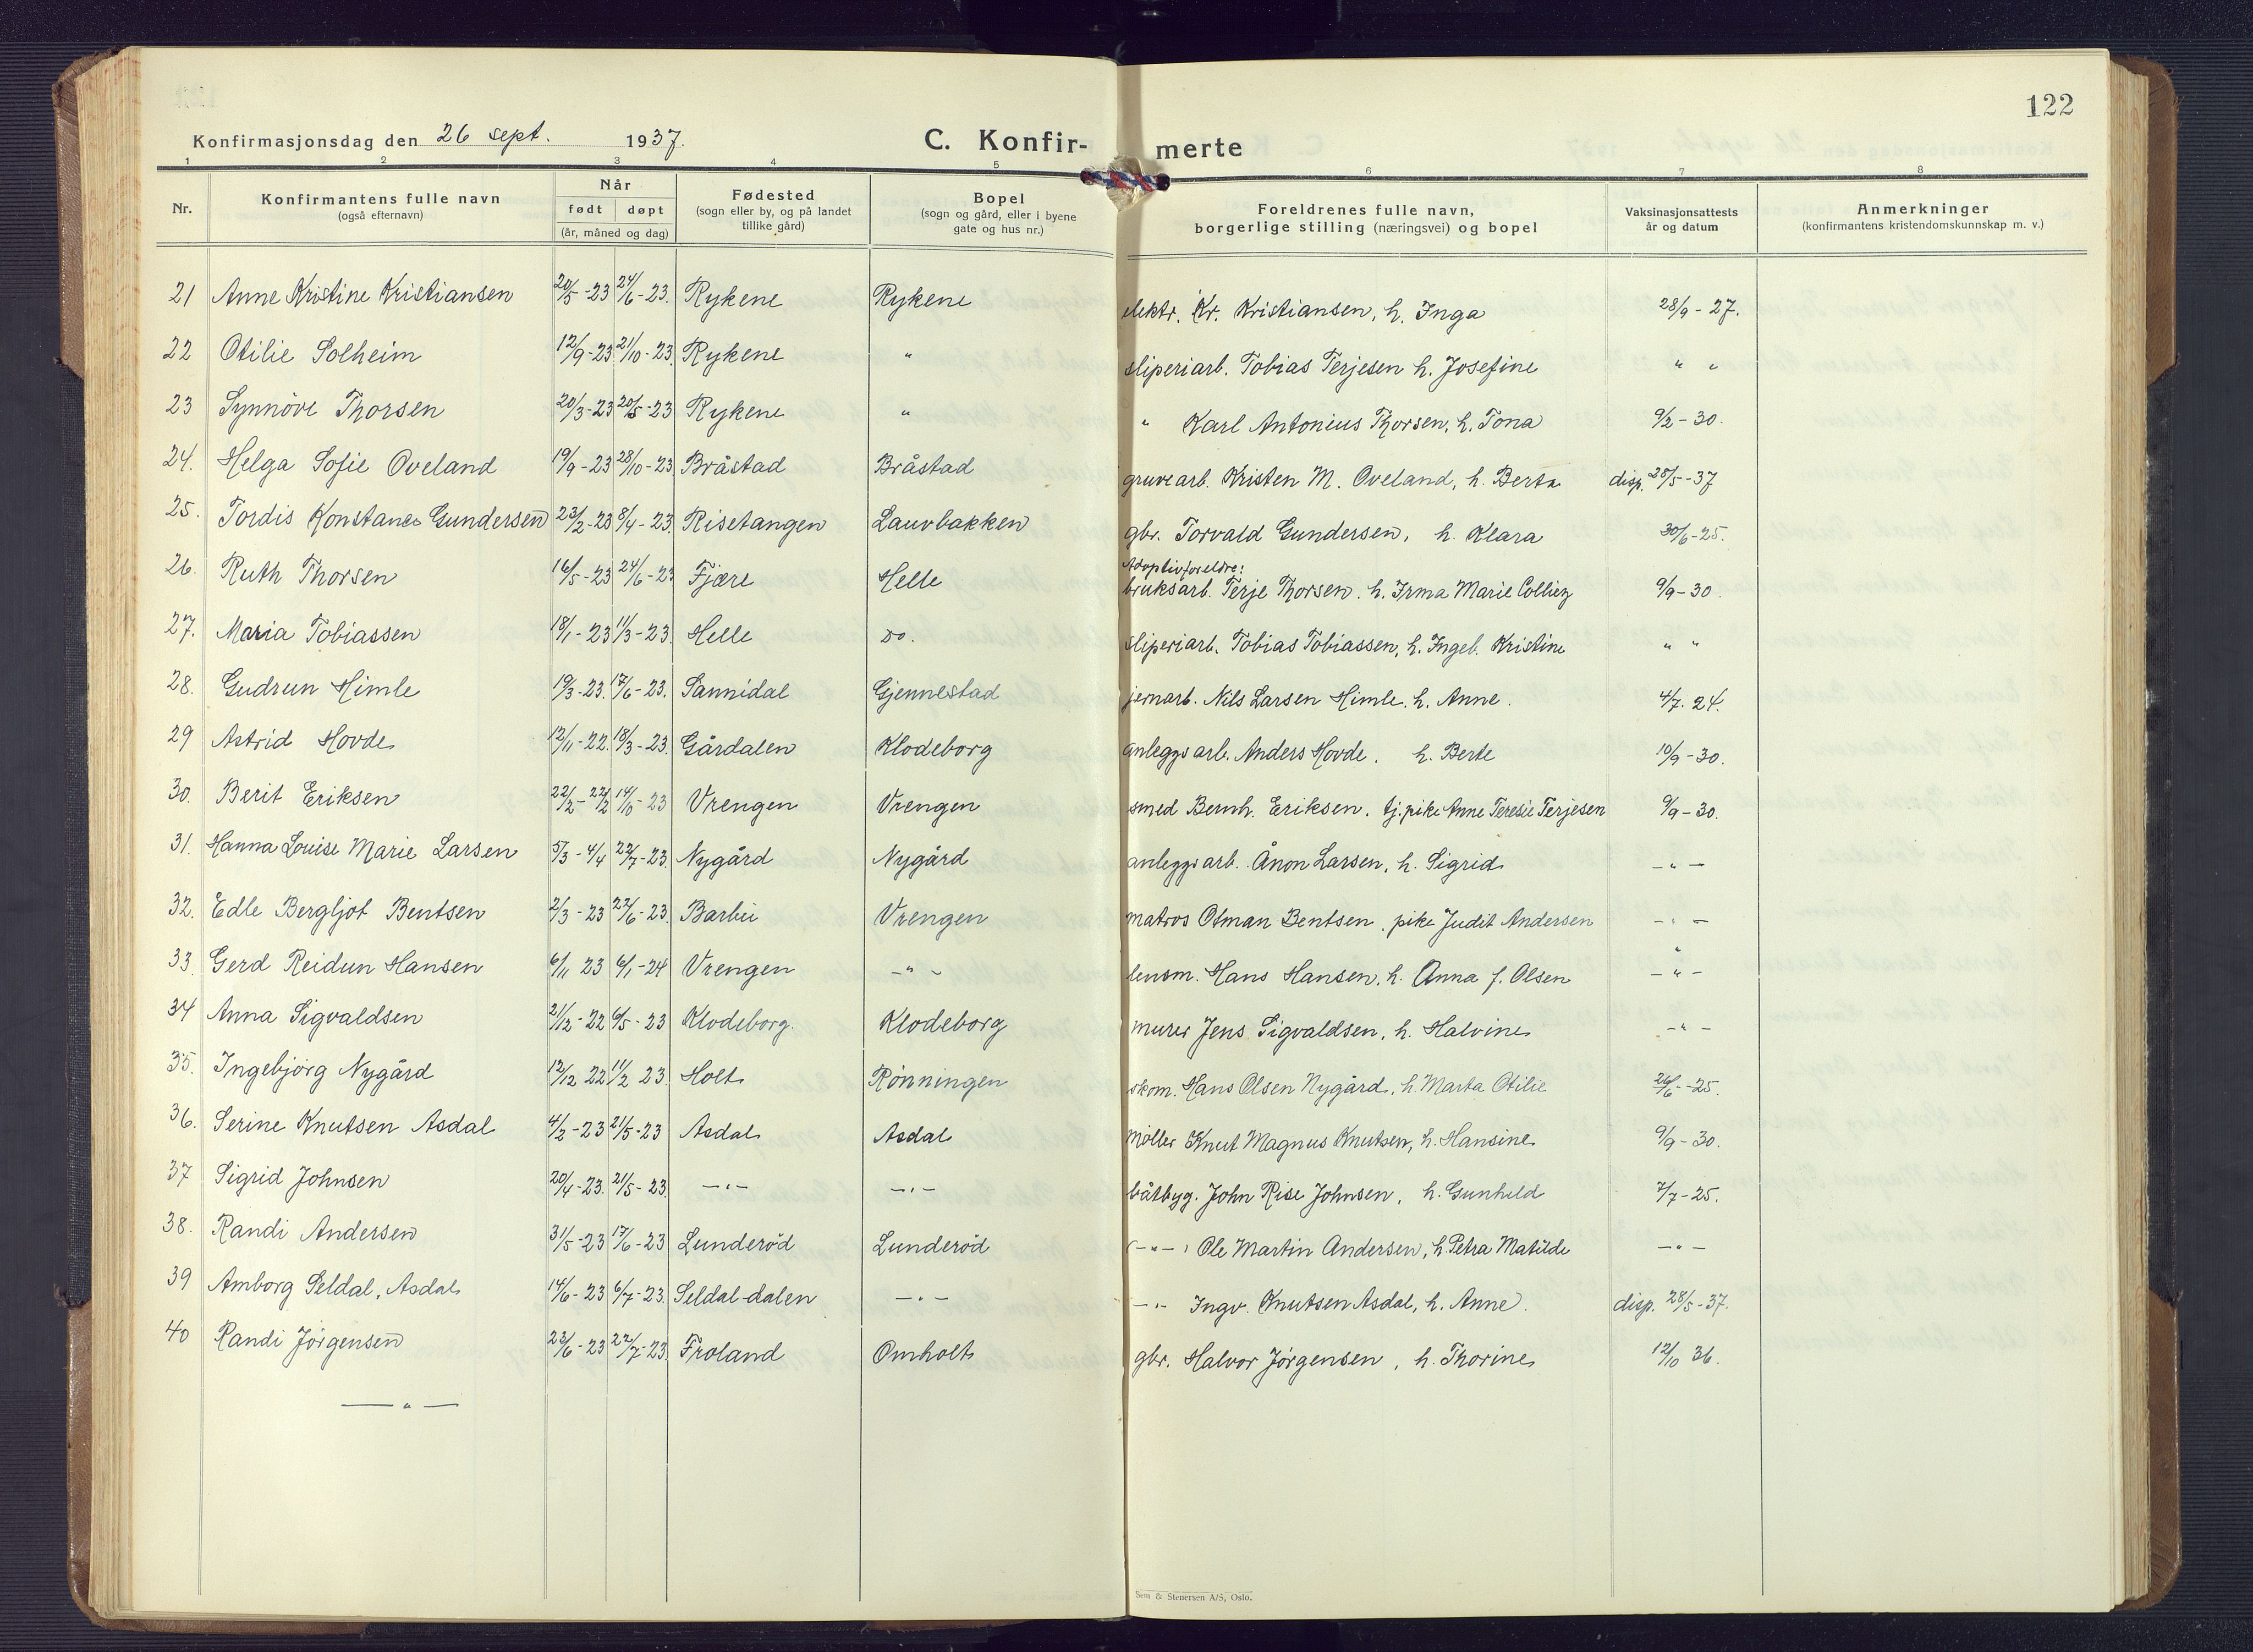 122
Konfirmasjonsdag den 26 sept. 1937. C. Konfir- merte
1 2 3 4 5 6 7 8
Nr. Konfirmantens fulle navn (også efternavn) Når født døpt (år, måned og dag) Fødested (sogn eller by, og på landet tillike gård) Bopel (sogn og gård, eller i byene gate og hus nr.) Foreldrenes fulle navn, borgerlige stilling (næringsvei) og bopel Vaksinasjonsattests år og datum Anmerkninger (konfirmantens kristendomskunnskap m. v.)
21 Anne Kristine Kristiansen 20/5-23 24/6-23. Rykene Rykene elektr. Kr. Kristiansen, h. Inga 28/9-27.
22 Otilie Solheim 12/9-23 21/10-23. Rykene " sliperiarb. Tobias Terjesen h. Josefine " "
23 Synnöve Thorsen 20/3-23 20/5-23 Rykene " " Karl Antonius Thorsen, h. Tona 9/2-30.
24. Helga Sofie Oveland 19/9-23 28/10-23 Bråstad Bråstad gruvearb. Kristen M. Oveland, h. Berta disp. 28/5-37
25. Tordis Konstance Gundersen 23/2-23 8/4-23. Risetangen Lauvbakken gbr. Torvald Gundersen, h. Klara 30/6-25.
26. Ruth Thorsen 16/5-23 24/6-23 Fjære Helle Adoptivforeldre: bruksarb. Terje Thorsen. h. Irma Marie Colliez 9/9-30.
27. Maria Tobiassen 18/1-23 11/3-23. Helle do. sliperiarb. Tobias Tobiassen, h. Ingeb. Kristine " "
28. Gudrun Himle 19/3-23. 17/6-23. Sannidal Gjennestad jernarb. Nils Larsen Himle. h. Anne. 4/7. 24.
29 Astrid Hovde 12/11-22. 18/3-23. Gårdalen Klodeborg anleggsarb. Anders Hovde. h. Berte 10/9-30.
30. Berit Eriksen 22/2-22/2 14/10-23 Vrengen Vrengen smed Bernh. Eriksen. tj.pike Anne Teresie Terjesen 9/9-30.
31. Hanna Louise Marie Larsen 5/3-4/4 22/7-23. Nygård Nygård anleggsarb. Ånon Larsen, h. Sigrid -"-
32. Edle Bergljot Bentsen 2/3-23 22/6-23. Barbu Vrengen matros Otman Bentsen, pike Judit Andersen -"-
33. Gerd Reidun Hansen 6/11 23 6/1-24 Vrengen -"- lensm. Hans Hansen, h. Anna f. Olsen -"-
34 Anna Sigvaldsen 21/12-22 6/5-23 Klodeborg. Klodeborg murer Jens Sigvaldsen, h. Halvine -"-
35. Ingebjørg Nygård 12/12 22 11/2 23. Holt Rönningen skom. Hans Olsen Nygård, h. Marta Otilie 26/6-25.
36. Serine Knutsen Asdal 4/2-23 21/5-23 Asdal Asdal möller Knut Magnus Knutsen, h. Hansine 9/9-30.
37 Sigrid Johnsen 20/4-23. 21/5-23. -"- -"- båtbyg. John Rise Johnsen, h. Gunhild 7/7-25.
38. Randi Andersen 31/5-23 17/6-23 Lunderöd Lunderöd (-"-) Ole Martin Andersen, h. Petra Matilde -"-
39 Amborg Seldal, Asdal 14/6-23 6/7-23. Seldal-dalen -"- -"- Ingv. Knutsen Asdal, h. Anne. disp. 28/5-37.
40 Randi Jörgensen 23/6-23 22/7-23. Froland Omholt gbr. Halvor Jörgensen, h. Thorine 12/10 36.
-"-
Sem & Stenersen A/S, Oslo.